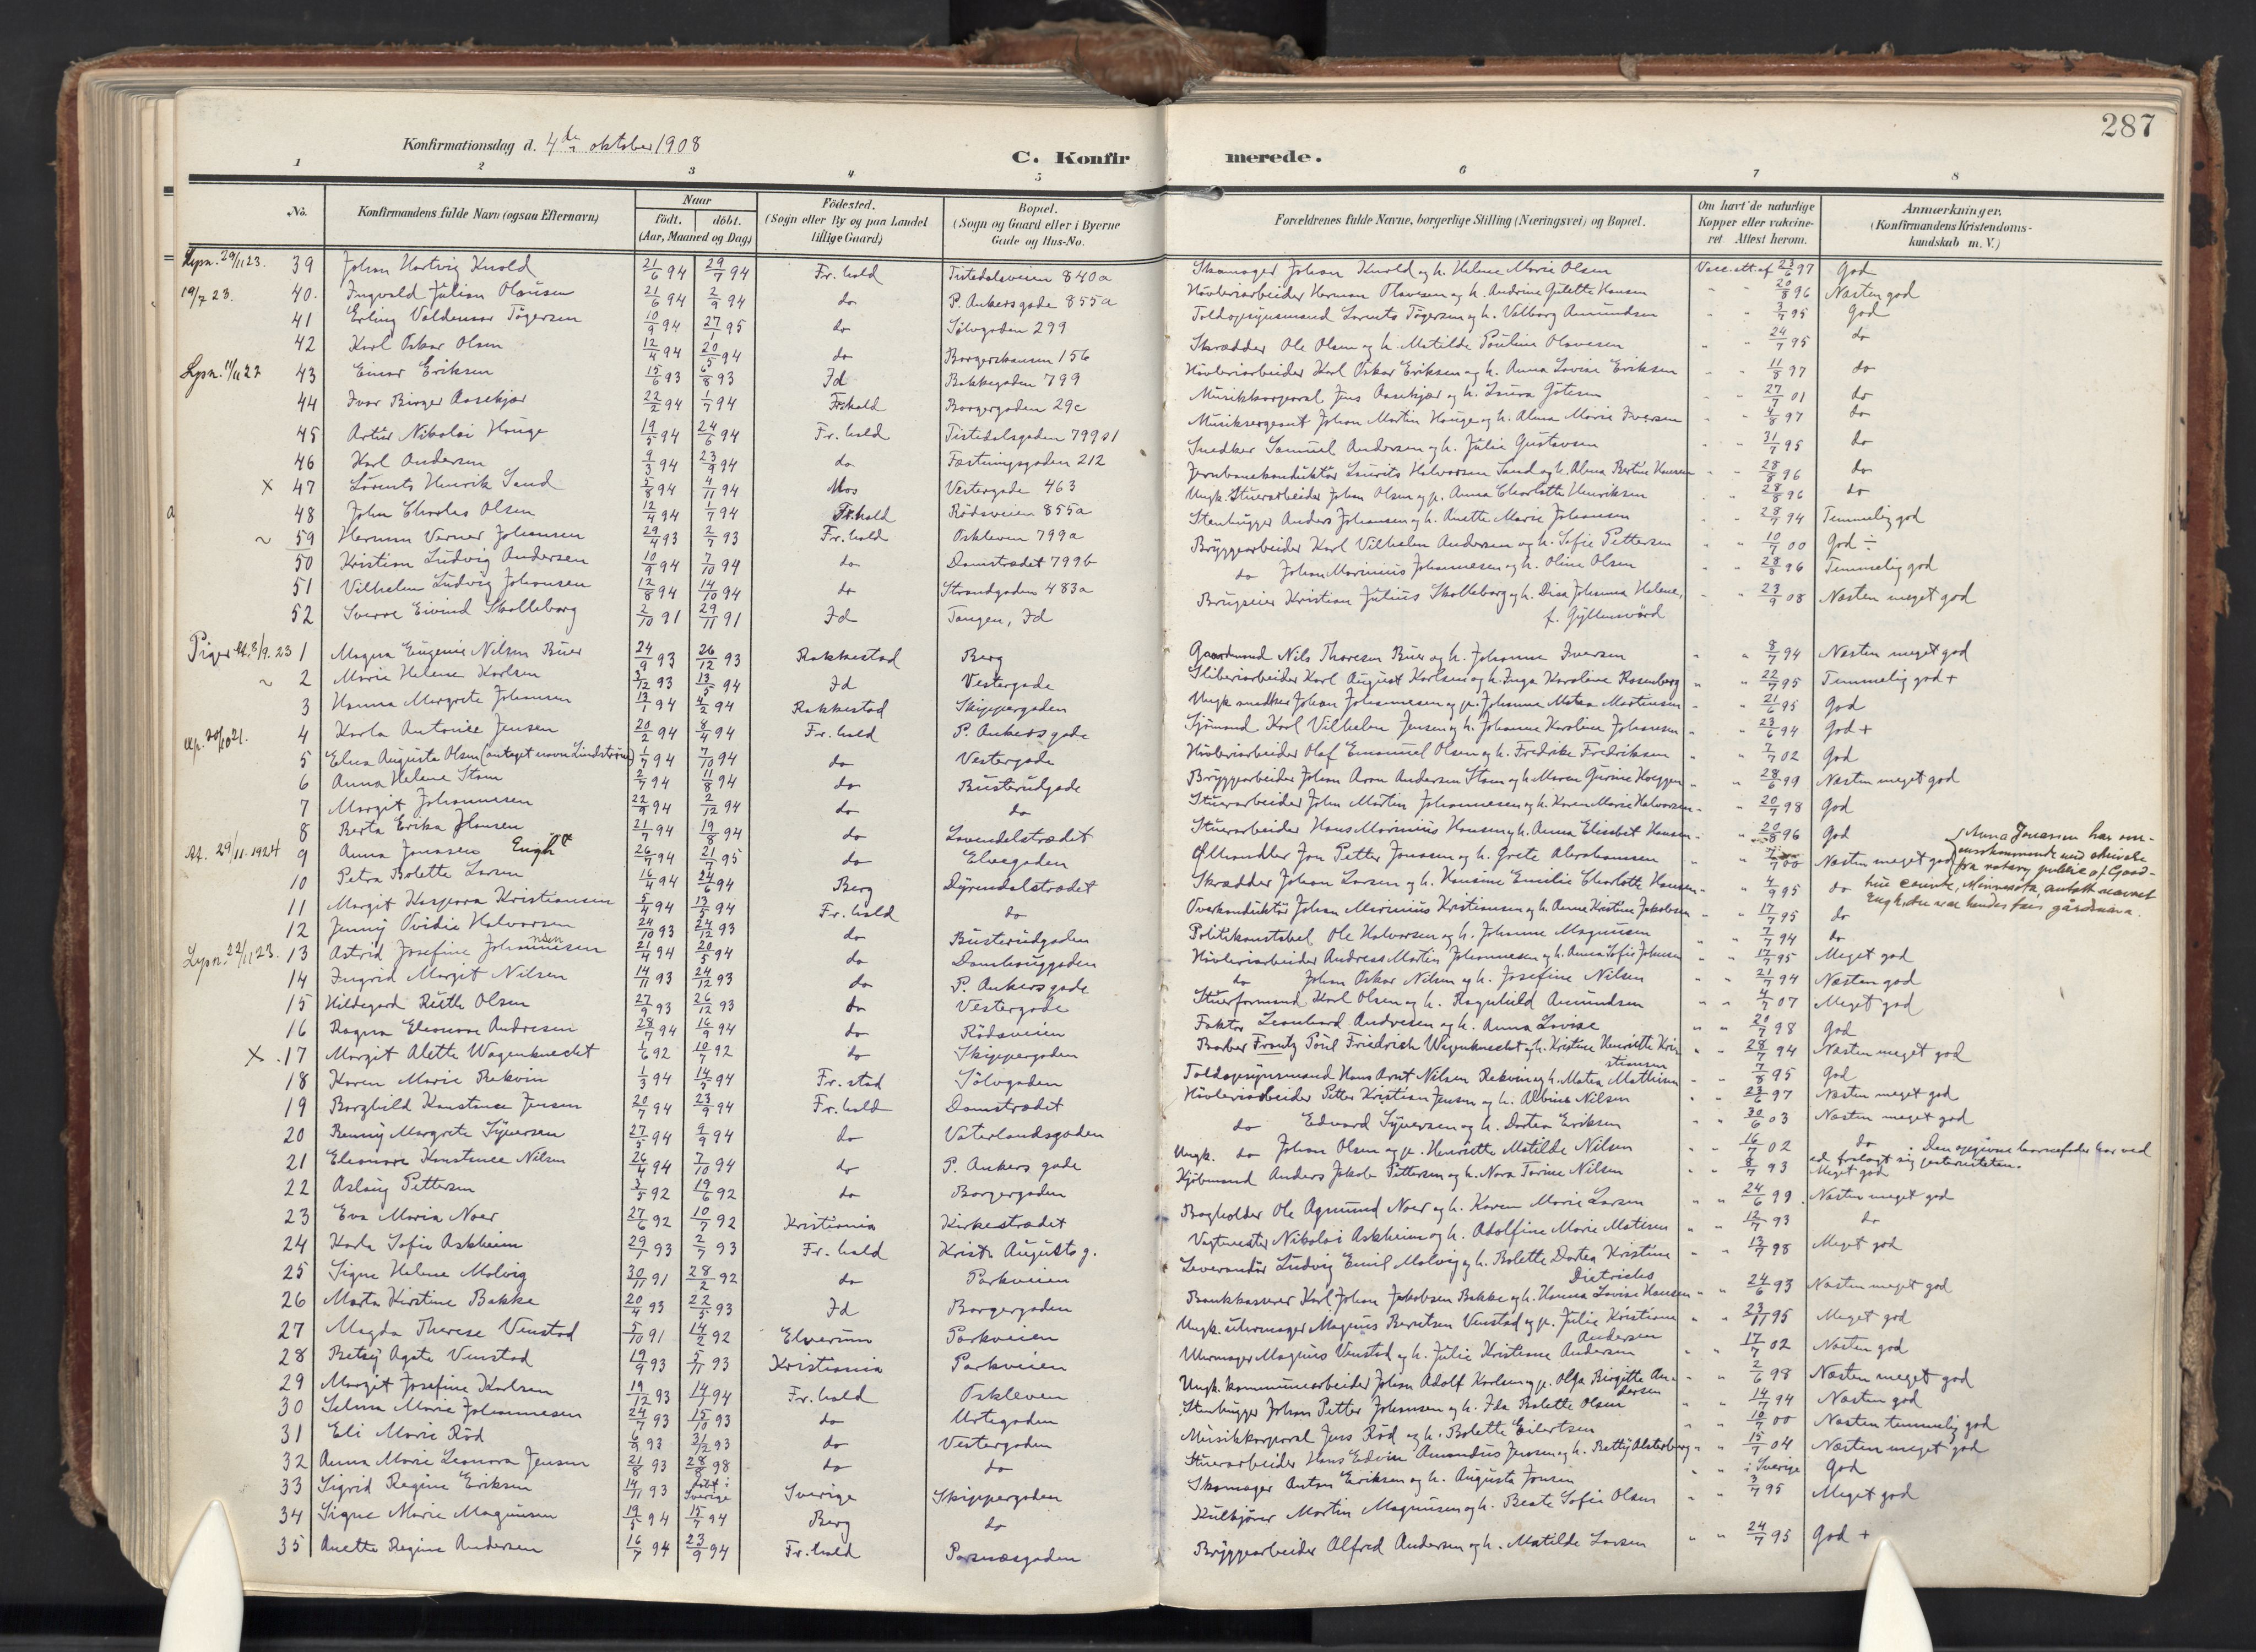 287
Konfirmationsdag d. 4de oktober 1908
C. Konfirmerede.
1 2 3 4 5 6 7 8
No. | Konfirmandens fulde Navn (ogsaa Efternavn) | Naar födt. döbt. (Aar, Maaned og Dag) | Födested. (Sogn eller By og paa Landet tillige Gaard) | Bopæl. (Sogn og Gaard eller i Byerne Gade og Hus-No. | Forældrenes fulde Navne, borgerlige Stilling (Næringsvei) og Bopæl. | Om havt de naturlige Kopper eller vakcineret Attest herom. | Anmærkninger. (Konfirmandens Kristendomskundskab m. V.)
Lysn. 29/11 23. 39 Johan Hartvig Knold 21/6 94 29/7 94 Fr.hald Tistedalsveien 840a Skomager Johan Knold og h. Helene Marie Olsen Vacc. att. af 23/6 97 God
19/7 23. 40. Ingvald Julian Olausen 21/6 94 2/9 94 do P. Ankersgade 855a Høvleriarbeider Herman Olavesen og h. Andrine Gulette Hansen " " 20/8 96 Næsten god
41 Erling Valdemar Tøgersen 10/9 94 27/1 95 do Sølvgaden 299 Toldopsynsmand Lorents Tøgersen og h. Valborg Amundsen " " 3/7 95 God
42 Karl Oskar Olsen 12/4 94 20/5 94 do Borgerskansen 156 Skrædder Ole Olsen og h. Matilde Pauline Olavesen " " 24/7 95 do
Lysn. 11/11 22 43 Einar Eriksen 15/6 93 6/8 93 Id Bakkegaden 799 Høvleriarbeider Karl Oskar Eriksen og h. Anna Lovise Eriksen " " 11/8 97 do
44 Ivar Birger Aasekjær 22/2 94 1/7 94 Fr.hald Borgergaden 29c Musikkorporal Jens Aasekjær og h. Laura Gulesen " " 27/7 01 do
45 Artur Nikolai Hauge 19/5 94 24/6 94 Fr. hald Tistedalsgaden 799 01 Musiksergeant Johan Martin Hauge og h. Alma Marie Iversen " " 4/8 97 do
46 Karl Andersen 9/3 94 23/9 94 do Fæstningsgaden 212 Snedker Samuel Andersen og h. Julie Gustavsen " " 31/7 95 do
x 47 Lorents Henrik Sand 2/8 94 4/11 94 Mos Vestergade 463 Jernbanekonduktør Laurits Halvorsen Sand og h. Alma Bertine Hansen " " 28/8 96 do
48 John Charles Olsen 12/4 94 1/7 94 Fr.hald Rødsveien 855a Ungk. Stuerarbeider Johan Olsen og p. Anna Charlotte Henriksen " " 28/8 96 do
~ 59 Herman Verner Johansen 29/4 93 2/7 93 Fr. hald Oskleven 799a Stenhugger Anders Johansen og h. Anette Marie Johansen " " 28/7 94 Temmelig god
50 Kristian Ludvig Andersen 10/9 94 7/10 94 do Damstrædet 799b Bryggearbeider Karl Vilhelm Andersen og h. Sofie Pettersen " " 10/7 00 God ÷
51 Vilhelm Ludvig Johansen 12/8 94 14/10 94 do Strandgaden 483a do Johan Marinius Johannesen og h. Oline Olsen " " 28/8 96 Temmelig god
52 Sverre Eivind Skolleborg 2/10 91 29/11 91 Id Tangen, Id Brugseier Kristian Julius Skolleborg og h. Dina Johanna Helene, f. Gyllensvärd " " 23/9 08 Næsten meget god
Piger At. 8/9. 23 1 Magna Eugenie Nilsen Buer 24/9 93 26/12 93 Rakkestad Berg Gaardmand Nils Thoresen Buer og h. Johanne Iversen " " 8/7 94 Næsten meget god
~ 2 Marie Helene Karlsen 3/12 93 13/5 94 Id Vestergade Sliberiarbeider Karl August Karlsen og h. Inga Karoline Rosenberg " " 22/7 95 Temmelig god +
3 Hanna Margrete Johansen 13/1 94 4/2 94 Rakkestad Skippergaden Ungk. snedker Johan Johannesen og p. Johanne Matea Martinsen " " 21/6 95 God
exp. 20/10 21. 4 Karla Antonie Jensen 20/2 94 8/4 94 Fr. hald P. Ankersgade Sjömand Karl Vilhelm Jensen og h. Johanne Karoline Johansen " " 23/6 94 God +
5 Elna Augusta Olsen (antaget navn Lindstrøm) 1/7 94 7/10 94 do Vestergade Høvleriarbeider Olaf Emanuel Olsen og h. Fredrike Fredriksen " " 7/7 02 God
6 Anna Helene Stam 2/7 94 11/8 94 do Busterudgade Bryggearbeider Johan Aron Andersen Stam og h. Maren Gurine Hoeggen " " 28/6 99 Næsten meget god
7 Margit Johannesen 22/9 94 2/12 94 do do Stuerarbeider John Martin Johannesen og h. Karen Marie Halvorsen " " 20/7 98 God
8 Berta Erika Hansen 21/7 94 19/8 94 do Lavendelstrædet Stuerarbeider Hans Marinius Hansen og h. Anna Elisabet Hansen " " 20/8 96 God
At. 29/11. 1924 9 Anna Jonassen Engh 26/7 94 21/7 95 do Elvegaden Ølhandler Jon Petter Jonassen og h. Grete Abrahamsen " " 7/7 00 Næsten meget god { Anna Jonassen har overensstemmende med skrivelse fra notary public af Goodhue county, Minnesota antatt navnet Engh, der var hendes fars gårdsnavn.
10 Petra Bolette Larsen 16/4 94 24/6 94 Berg Dyrendalstrædet Skrædder Johan Larsen og h. Hansine Emilie Charlotte Hansen " " 4/9 95 do
11 Margit Kaspara Kristiansen 5/4 94 13/5 94 Fr. hald do Overkonduktør Johan Marinius Kristiansen og h. Anne Kristine Jakobsen " " 17/7 95 do
12 Jenny Ovidie Halvorsen 24/10 93 24/12 93 do Busterudgaden Politikonstabel Ole Halvorsen og h. Johanne Magnusen " " 7/7 94 do
Lysn. 22/11 23. 13 Astrid Josefine Johannesen 21/4 94 20/5 94 do Damhauggaden Høvleriarbeider Andreas Martin Johannesen og h. Anna Sofie Johnsen " " 17/7 95 Meget god
14 Ingrid Margit Nilsen 14/11 93 24/12 93 do P. Ankersgade do Johan Oskar Nilsen og h. Josefine Nilsen " " 21/7 94 Næsten god
15 Hildegard Ruth Olsen 27/9 93 26/12 93 do Vestergade Stuerformand Karl Olsen og h. Ragnhild Amundsen " " 4/7 07 Meget god
16 Ragna Eleonore Andresen 28/7 94 16/9 94 do Rødsveien Faktor Leonhard Andresen og h. Anna Lovise " " 20/7 98 God
X .17 Margit Alette Wagenknecht 1/6 92 10/7 92 do Skippergaden Barber Frantz Poul Friedrich Wagenknecht og h. Kristine Henriette Kristiansen " " 28/7 94 Næsten meget god
18 Karen Marie Rekvin 1/3 94 14/5 94 Fr. stad Sølvgaden Toldopsynsmand Hans Arnt Nilsen Rekvin og h. Matea Mathisen " " 7/8 95 God
19 Borghild Konstance Jensen 20/7 94 23/9 94 Fr. hald Damstrædet Høvleriarbeider Petter Kristian Jensen og h. Albine Nilsen " " 23/6 97 Næsten meget god
20 Benny Margrete Syversen 27/5 94 9/9 94 do Vaterlandsgaden do Edvard Syversen og h. Dortea Eriksen " " 30/6 03 Næsten meget god
21 Eleonore Konstance Nilsen 26/4 94 7/10 94 do P. Ankers gade Ungk. do Johan Olsen og p. Henriette Matilde Nilsen " " 16/7 02 do Den opgivne barnefader har ved ed fralagt sig paterniteten.
22 Aslaug Pettersen 3/5 92 19/6 92 do Borgergaden Kjøbmand Anders Jakob Pettersen og h. Nora Torine Nilsen " " 8/7 93 Meget god
23 Eva Maria Noer 27/6 92 10/7 92 Kristiania Kirkestrædet Bogholder Ole Agmund Noer og h. Karen Marie Larsen " " 24/6 99 Næsten meget god
24 Karla Sofie Askheim 29/1 93 2/7 93 Fr. hald Krist. Augustsg. Vagtmester Nikolai Askheim og h. Adolfine Marie Matisen " " 12/7 93 do
25 Signe Helene Molvig 30/11 91 28/2 92 do Parkveien Leverandør Ludvig Emil Molvig og h. Bolette Dortea Kristine Dietrichs " " 13/7 98 Meget god
26 Marta Kirstine Bakke 20/4 93 22/5 93 Id Borgergaden Bankkasserer Karl Johan Jakobsen Bakke og h. Hanna Lovise Hansen " " 24/6 93 Næsten meget god
27 Magda Therese Venstad 5/10 91 14/2 92 Elverum Parkveien Ungk. uhrmager Magnus Berntsen Venstad og p. Julie Kristiane Andersen " " 23/11 95 Meget god
28 Betsy Agate Venstad 19/9 93 5/11 93 Kristiania Parkveien Uhrmager Magnus Venstad og h. Julie Kristiane Andersen " " 17/7 02 Næsten god
29 Margit Josefine Karlsen 19/12 93 14/1 94 Fr. hald Oskleven Ungk. kommunearbeider Johan Adolf Karlsen og p. Olga Birgitte Andersen " " 2/6 98 Næsten meget god
30 Selma Marie Johannesen 24/7 93 15/10 93 do Urtegaden Stenhugger Johan Petter Johansen og h. Ida Bolette Olsen " " 14/7 94 Næsten god
31 Eli Marie Rød 6/9 93 31/12 93 do Vestergaden Musikkorporal Jens Rød og h. Bolette Eilertsen " " 10/7 00 Næsten temmelig god
32 Anna Marie Leonora Jensen 21/8 93 28/8 98 do do Stuerarbeider Hans Edvin Amandus Jensen og h. Betty Alsterberg " " 15/7 04 Næsten meget god
33 Sigrid Regine Eriksen 14/11 93 döbt i Sverige Sverige Skippergaden Skomager Anton Eriksen og h. Augusta Jonsen " " i Sverige God
34 Signe Marie Magnusen 19/5 94 15/7 94 Berg do Kulkjører Martin Magnusen og h. Beate Sofie Olsen " " 3/7 95 Meget god
35 Anette Regine Andersen 16/7 94 23/9 94 Fr. hald Porsnæsgaden Bryggearbeider Alfred Andersen og h. Matilde Larsen " " 24/7 95 God +